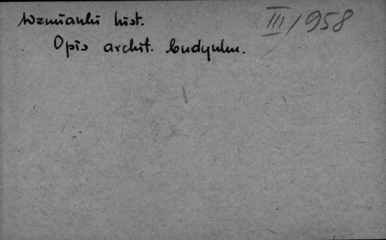 Wzmianki hist. III/1958
Opis archit. budynku.